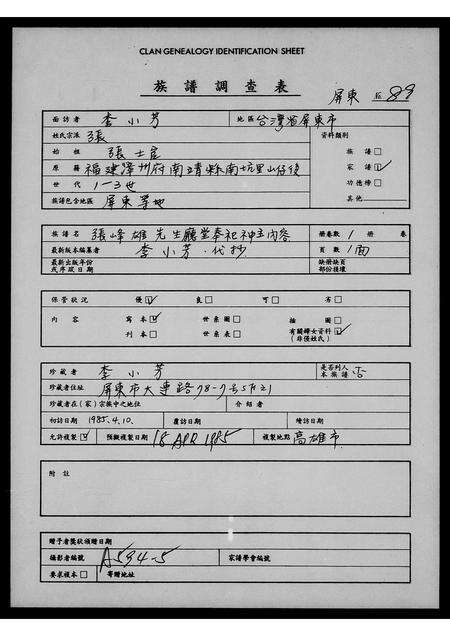 CLAN GENEALOGY IDENTIFICATION SHEET
族 譜 調 查 表
屏東 № 89
面訪者 李小芳 地區 台灣省屏東市
姓氏宗派 張 資料類別
始祖 張士 族譜 □
原籍 福建漳州府南靖縣南坑里山仔後 家譜 ☑
世代 1—3世 功德榜 □
族譜包含地區 屏東等地 其他
族譜名 張峰雄先生廳堂奉祀神主內容 册卷數 1 册 卷
最新版本編纂者 李小芳·代抄 頁數 1面
最新出版年份或序跋日期 缺册缺頁部份損壞
保管狀況 優 ☑ 良 □ 可 □ 劣 □
內容 寫本 ☑ 世系圖 □ 插圖 □
刊本 □ 世系表 □ 有關婦女資料 (非僅姓氏) ☑
珍藏者 李小芳 是否列入本族譜 否
珍藏者住址 屏東市大連路78-7號5F之1
珍藏者在(家)宗族中之地位 介紹者
初訪日期 1985.4.10. 覆訪日期 續訪日期
允許複製 ☑ 預擬複製日期 18 APR 1985 複製地點 高雄市
附註
贈予者獎狀頒贈日期
攝影者編號 A594-5 家譜學會編號
要求複本 □ 寄贈地址